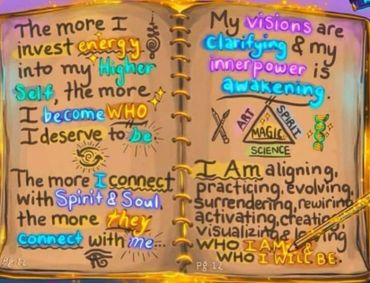 The more I
invest energy
into my Higher
Self, the more
I become WHO
I deserve to be
The more I connect
with Spirit & Soul,
the more they
connect with me...
Pg. 11
My visions are
clarifying & my
inner power is
awakening.
ART
SPIRIT
MAGIC
SCIENCE
I Am aligning,
practicing, evolving,
surrendering, rewiring
activating, creating,
visualizing &
WHO I AM &
WHO I WILL BE.
Pg. 12